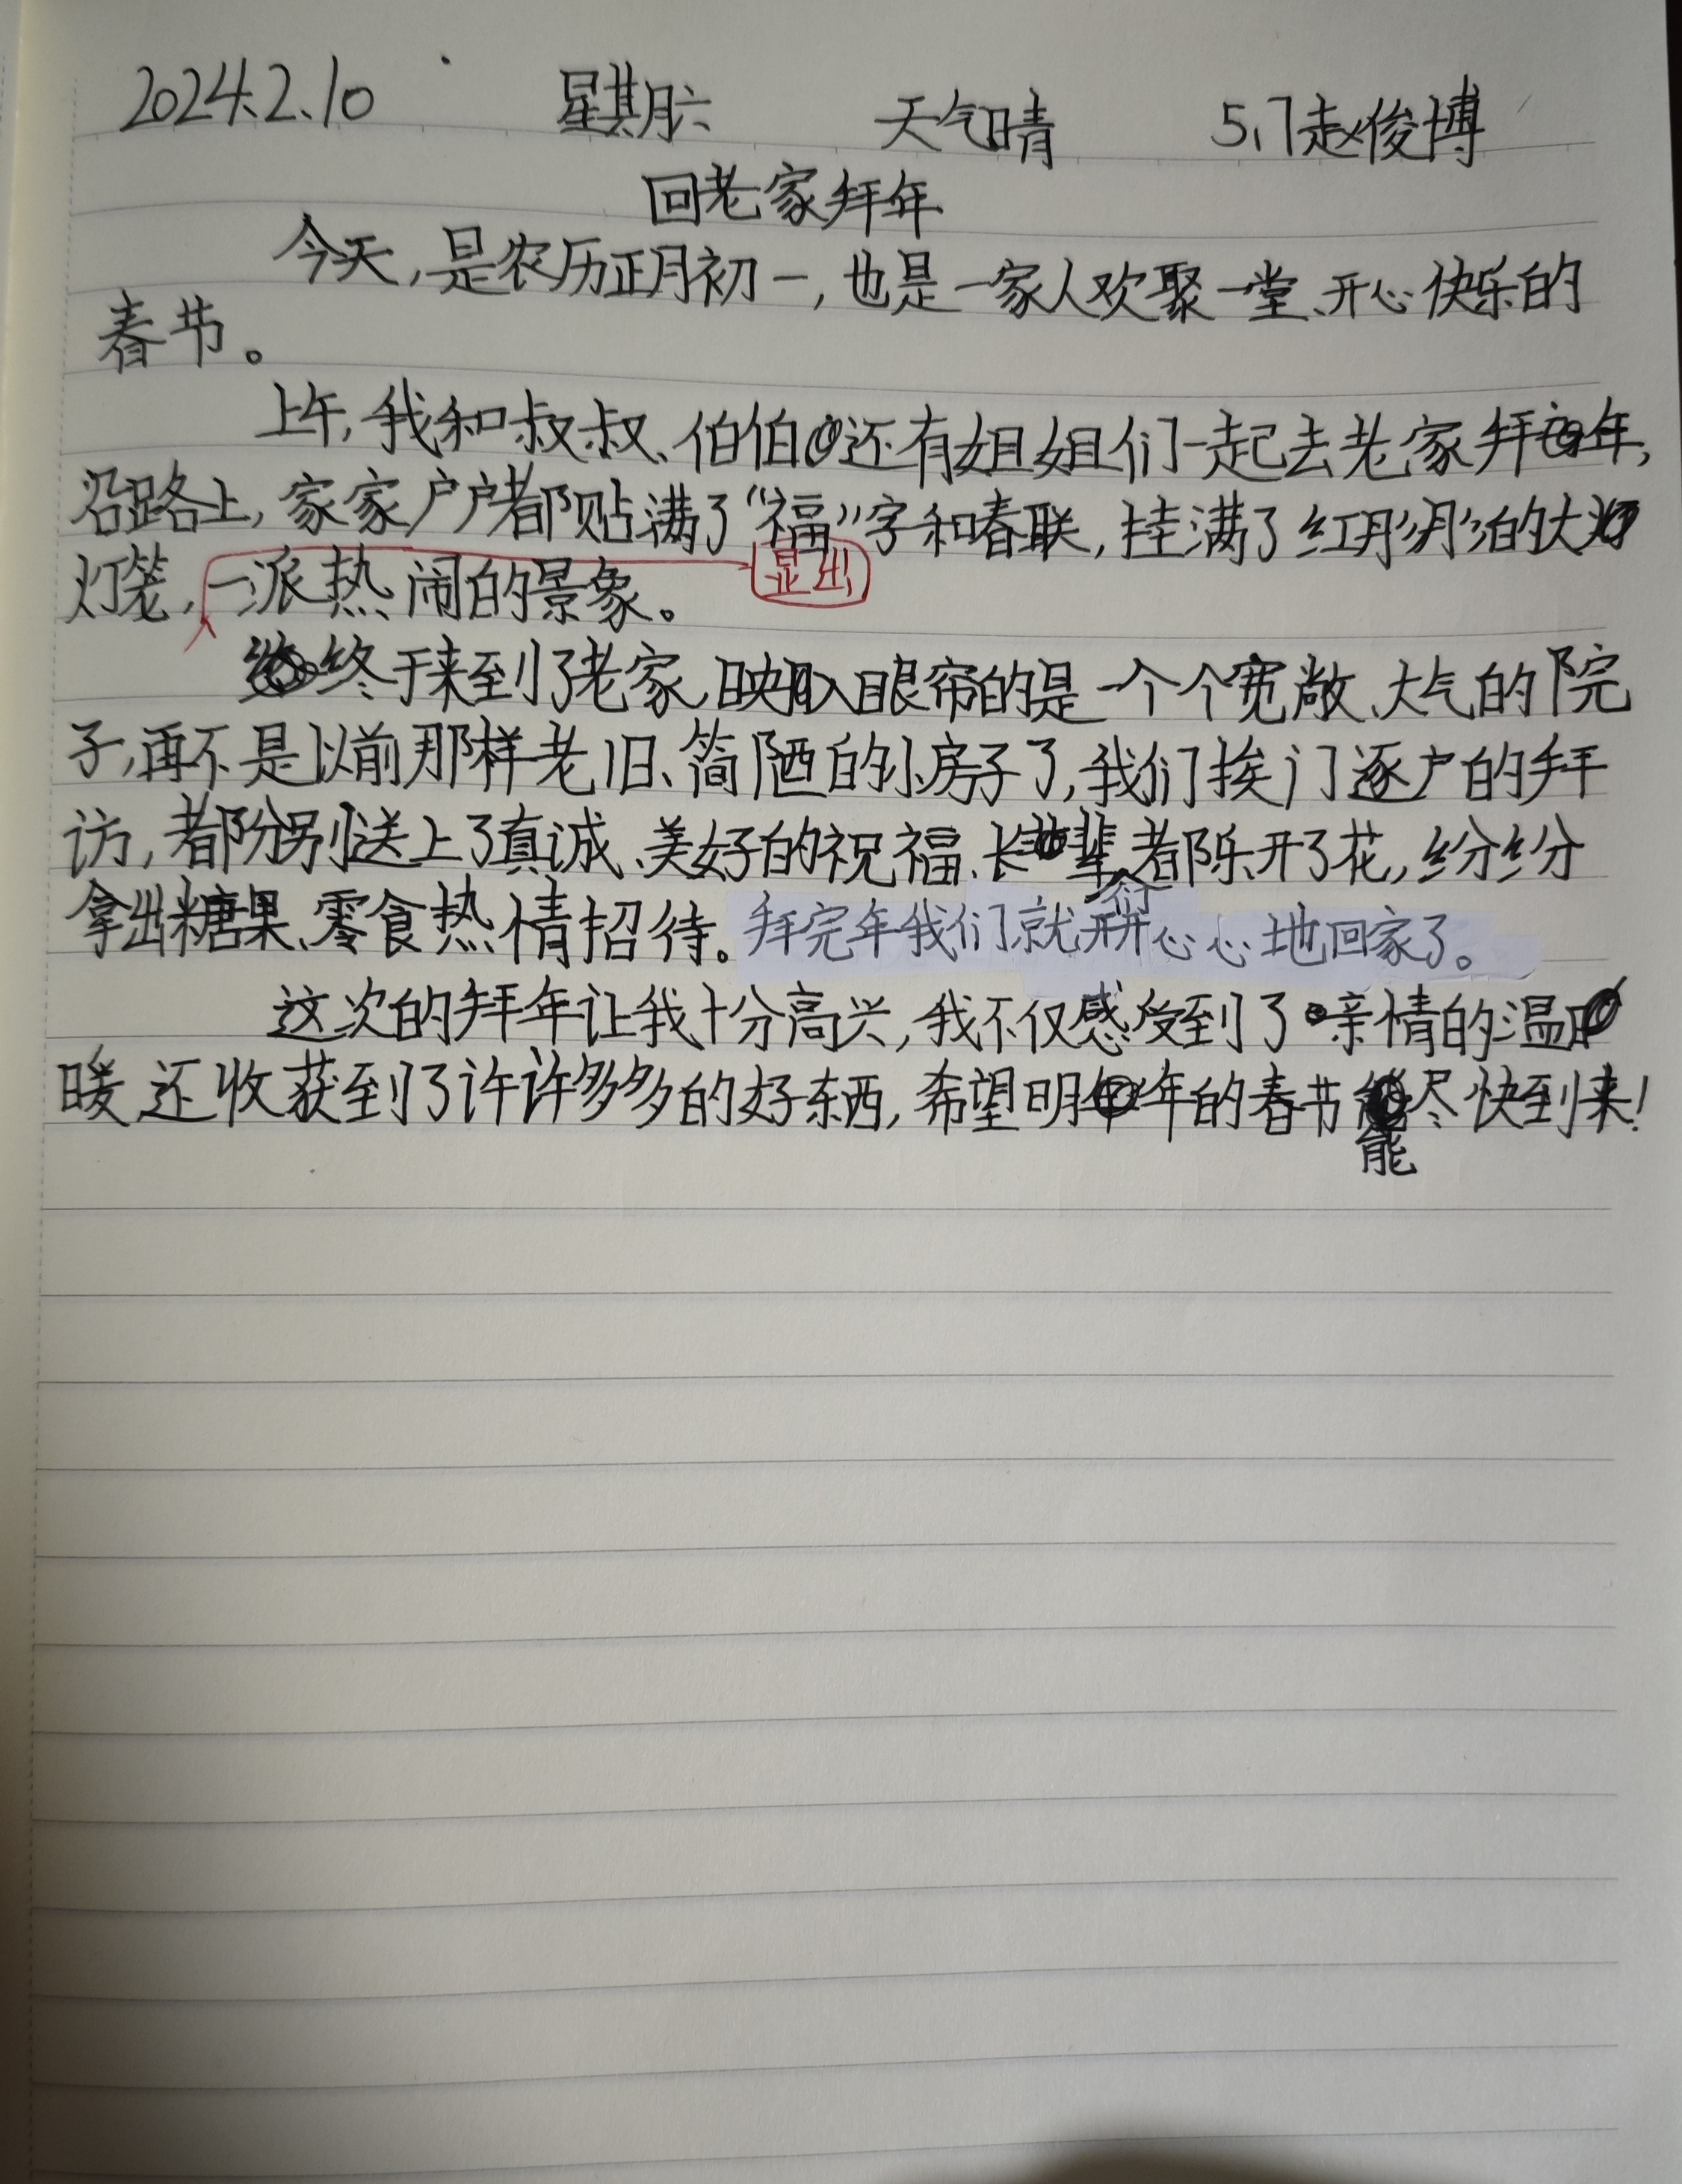 2024.2.10 星期六 天气晴 5.7赵俊博
回老家拜年
今天,是农历正月初一,也是一家人欢聚一堂、开心快乐的
春节。
上午,我和叔叔、伯伯还有姐姐们一起去老家拜年,
沿路上,家家户户都贴满了“福”字和春联,挂满了红彤彤的大
显出
灯笼,一派热闹的景象。
终于来到了老家,映入眼帘的是一个个宽敞、大气的院
子,再不是以前那样老旧、简陋的小房子了,我们挨门逐户的拜
访,都分别送上了真诚、美好的祝福、长辈们都乐开了花,纷纷
拿出糖果、零食热情招待。拜完年我们就开开心心地回家了。
这次的拜年让我十分高兴,我不仅感受到了亲情的温
暖还收获到了许许多多的好东西,希望明年的春节能尽快到来!